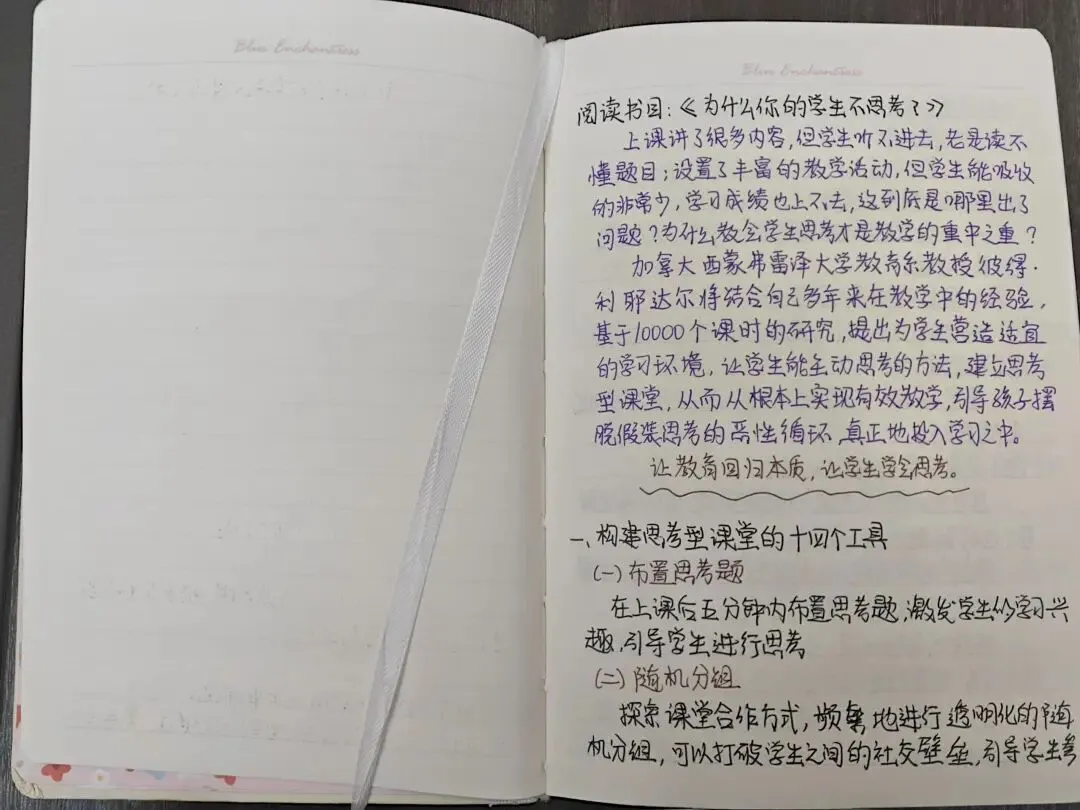 Blue Enchantress
Blue Enchantress
阅读书目:《为什么你的学生不思考?》
上课讲了很多内容,但学生听不进去,老是读不
懂题目;设置了丰富的教学活动,但学生能吸收
的非常少,学习成绩也上不去,这到底是哪里出了
问题?为什么教会学生思考才是教学的重中之重?
加拿大西蒙弗雷泽大学教育系教授彼得·
利耶达尔将结合自己多年来在教学中的经验,
基于10000个课时的研究,提出为学生营造适宜
的学习环境,让学生能主动思考的方法,建立思考
型课堂,从而从根本上实现有效教学,引导孩子摆
脱假装思考的恶性循环,真正地投入学习之中。
让教育回归本质,让学生学会思考。
一、构建思考型课堂的十四个工具
(一)布置思考题
在上课后五分钟内布置思考题,激发学生的学习兴
趣,引导学生进行思考
(二)随机分组
探索课堂合作方式,频繁地进行透明化的随
机分组,可以打破学生之间的社交壁垒,引导学生参